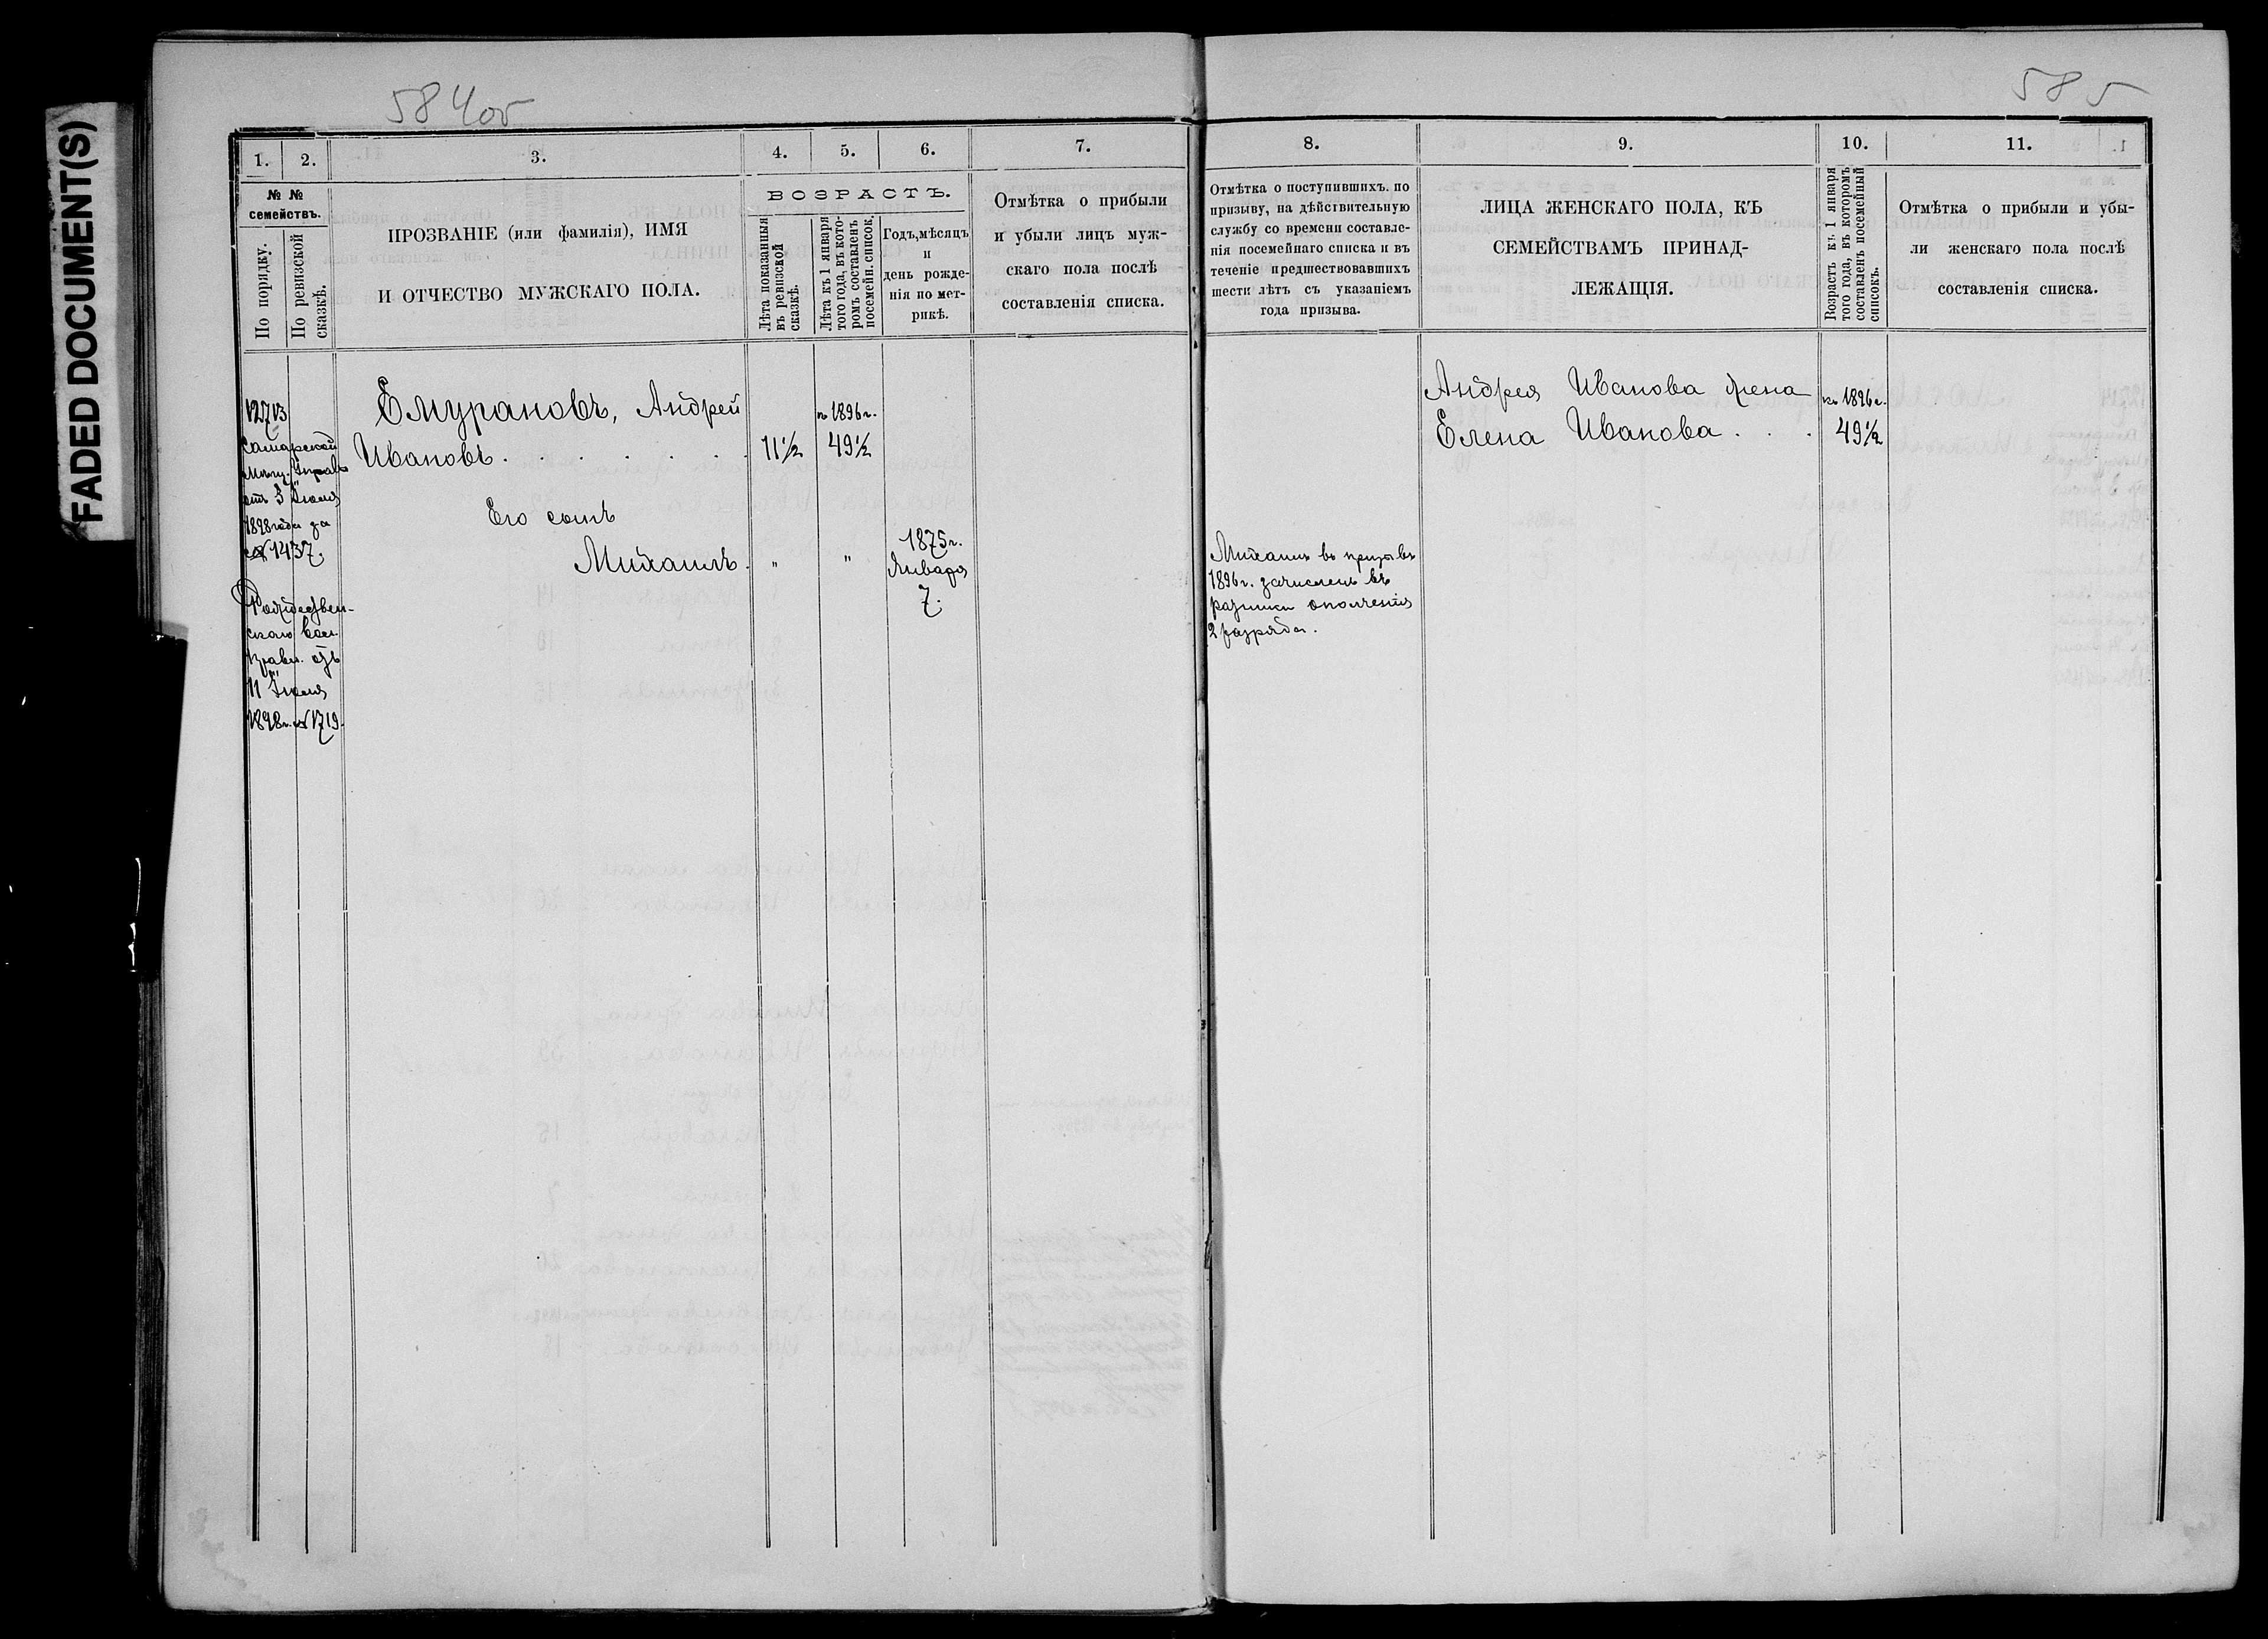 FADED DOCUMENT(S)
584об
585
1. 2. 3. 4. 5. 6. 7.
№ № семействъ.
По порядку.
По ревизской сказкѣ.
ПРОЗВАНІЕ (или фамилія), ИМЯ
И ОТЧЕСТВО МУЖСКАГО ПОЛА.
ВОЗРАСТЪ.
Лѣта показанныя
въ ревизской
сказкѣ.
Лѣта къ 1 января
того года, въ кото-
ромъ составленъ
посемейн. список.
Годъ, мѣсяцъ
и
день рожде-
нія по мет-
рикѣ.
Отмѣтка о прибыли
и убыли лицъ муж-
скаго пола послѣ
составленія списка.
8. 9. 10. 11.
Отмѣтка о поступившихъ. по
призыву, на дѣйствительную
службу со времени составле-
нія посемейнаго списка и въ
теченіе предшествовавшихъ
шести лѣтъ съ указаніемъ
года призыва.
ЛИЦА ЖЕНСКАГО ПОЛА, КЪ
СЕМЕЙСТВАМЪ ПРИНАД-
ЛЕЖАЩІЯ.
Возрастъ къ 1 января
того года, въ которомъ
составленъ посемейный
списокъ.
Отмѣтка о прибыли и убы-
ли женскаго пола послѣ
составленія списка.
12713
Самарской
Мѣщ. Управы
отъ 3 Іюля
1898 года за
№ 1437.
Рождествен-
скаго вол.
правл. отъ
11 Іюля
1898 г. № 1719.
Емурановъ, Андрей
къ 1896 г.
Ивановъ . . . . . . 11½ 49½
Его сынъ
Михаилъ. " "
1875 г.
Января
7.
Михаилъ въ призывъ
1896 г. зачисленъ въ
ратники ополченія
2 разряда.
Андрея Иванова жена
къ 1896 г.
Елена Иванова . . . 49½